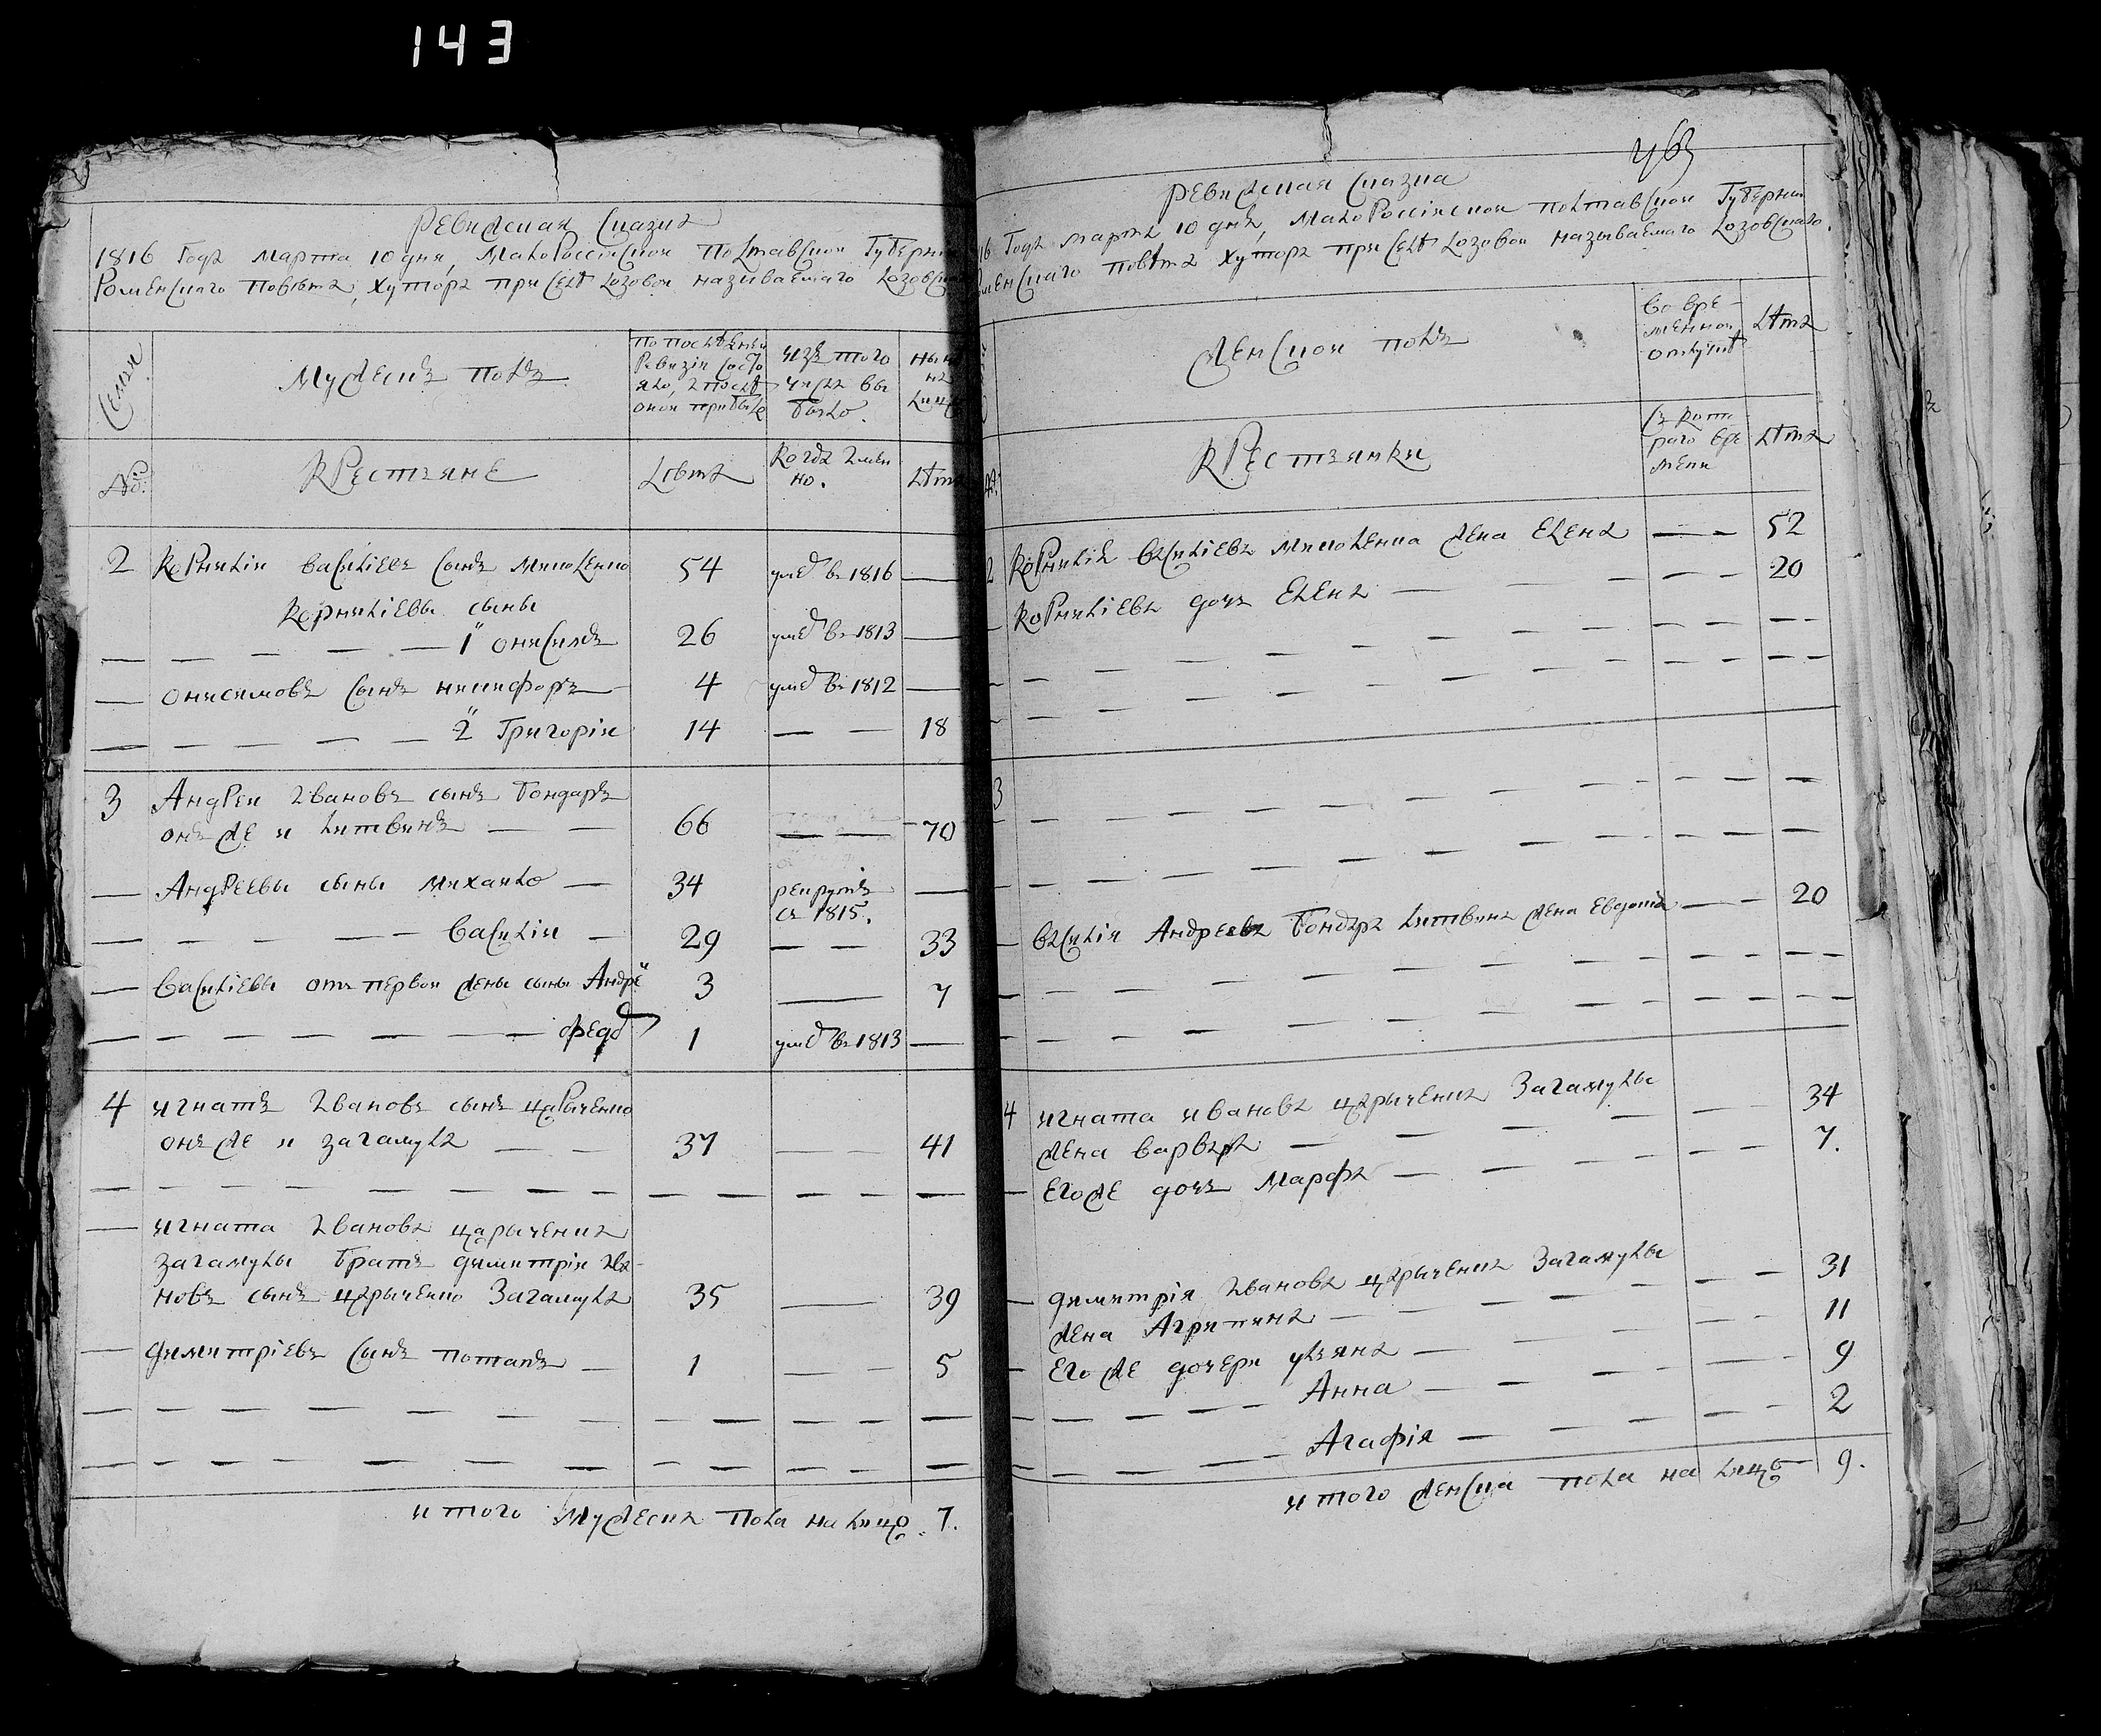 143
Ревижская Сказка
1816 Года Марта 10 дня, МалоРоссійской Полтавской Губерніи
Роменскаго Повѣта, Хуторъ при Селѣ Лозовой называемаго Лозовска
Семьи
Мужескъ полъ
По Последней Ревизіи Состояло, и после оной прибыло
изъ того числа выбыло.
ныне на лицо
№
Крестьяне
Лѣта
Когда имянно.
Лѣта
2 Корнилій Васильевъ Сынъ Миколенко 54 умеръ въ 1816 —
Корниліевы сыны
1й Онисимъ 26 умеръ въ 1813 —
Онисимовъ Сынъ Никифоръ 4 умеръ въ 1812 —
2й Григорій 14 — — 18
3 Андрей Ивановъ сынъ Бондаръ
онъ же и Литвинъ — — 66 — — 70
Андреевы сыны Михайло — 34 рекрутъ съ 1815. —
Василій — 29 — — 33
Василіевы отъ первой жены сыны Андрей 3 — 7
Федоръ 1 умеръ въ 1813 —
4 Игнатъ Ивановъ сынъ Царыченко
онъ же и Загамула — — 37 — — 41
Игната Иванова Царыченка
Загамулы братъ Димитрій Ива-
новъ сынъ Царыченко Загамула 35 — 39
Димитріевъ Сынъ Потапъ — 1 — — 5
итого Мужеска Пола на лицо. 7.
463
Ревижская Сказка
16 Года Марта 10 дня, МалоРоссійской Полтавской Губерніи
менскаго повѣта Хуторъ при Селѣ Лозовой называемаго Лозовскаго.
Женской полъ
Во временной отлучкѣ
Лѣта
№
Крестьянки
Съ котораго времени
Лѣта
2 Корнилія Василіева Миколенка жена Елена — — 52
Корниліева дочь Елена — — — — — 20
3
Василія Андреева Бондара Литвина жена Евдокія — — 20
4 Игната Иванова Царыченка Загамулы
жена Варвара — — — — — 34
Егоже дочь Марфа — — — — — 7.
Димитрія Иванова Царыченка Загамулы
жена Агрипина — — — — — 31
Егоже дочери Ульяна — — — — 11
Анна — — — 9
Агафія — — — 2
итого женска пола на лицо 9.